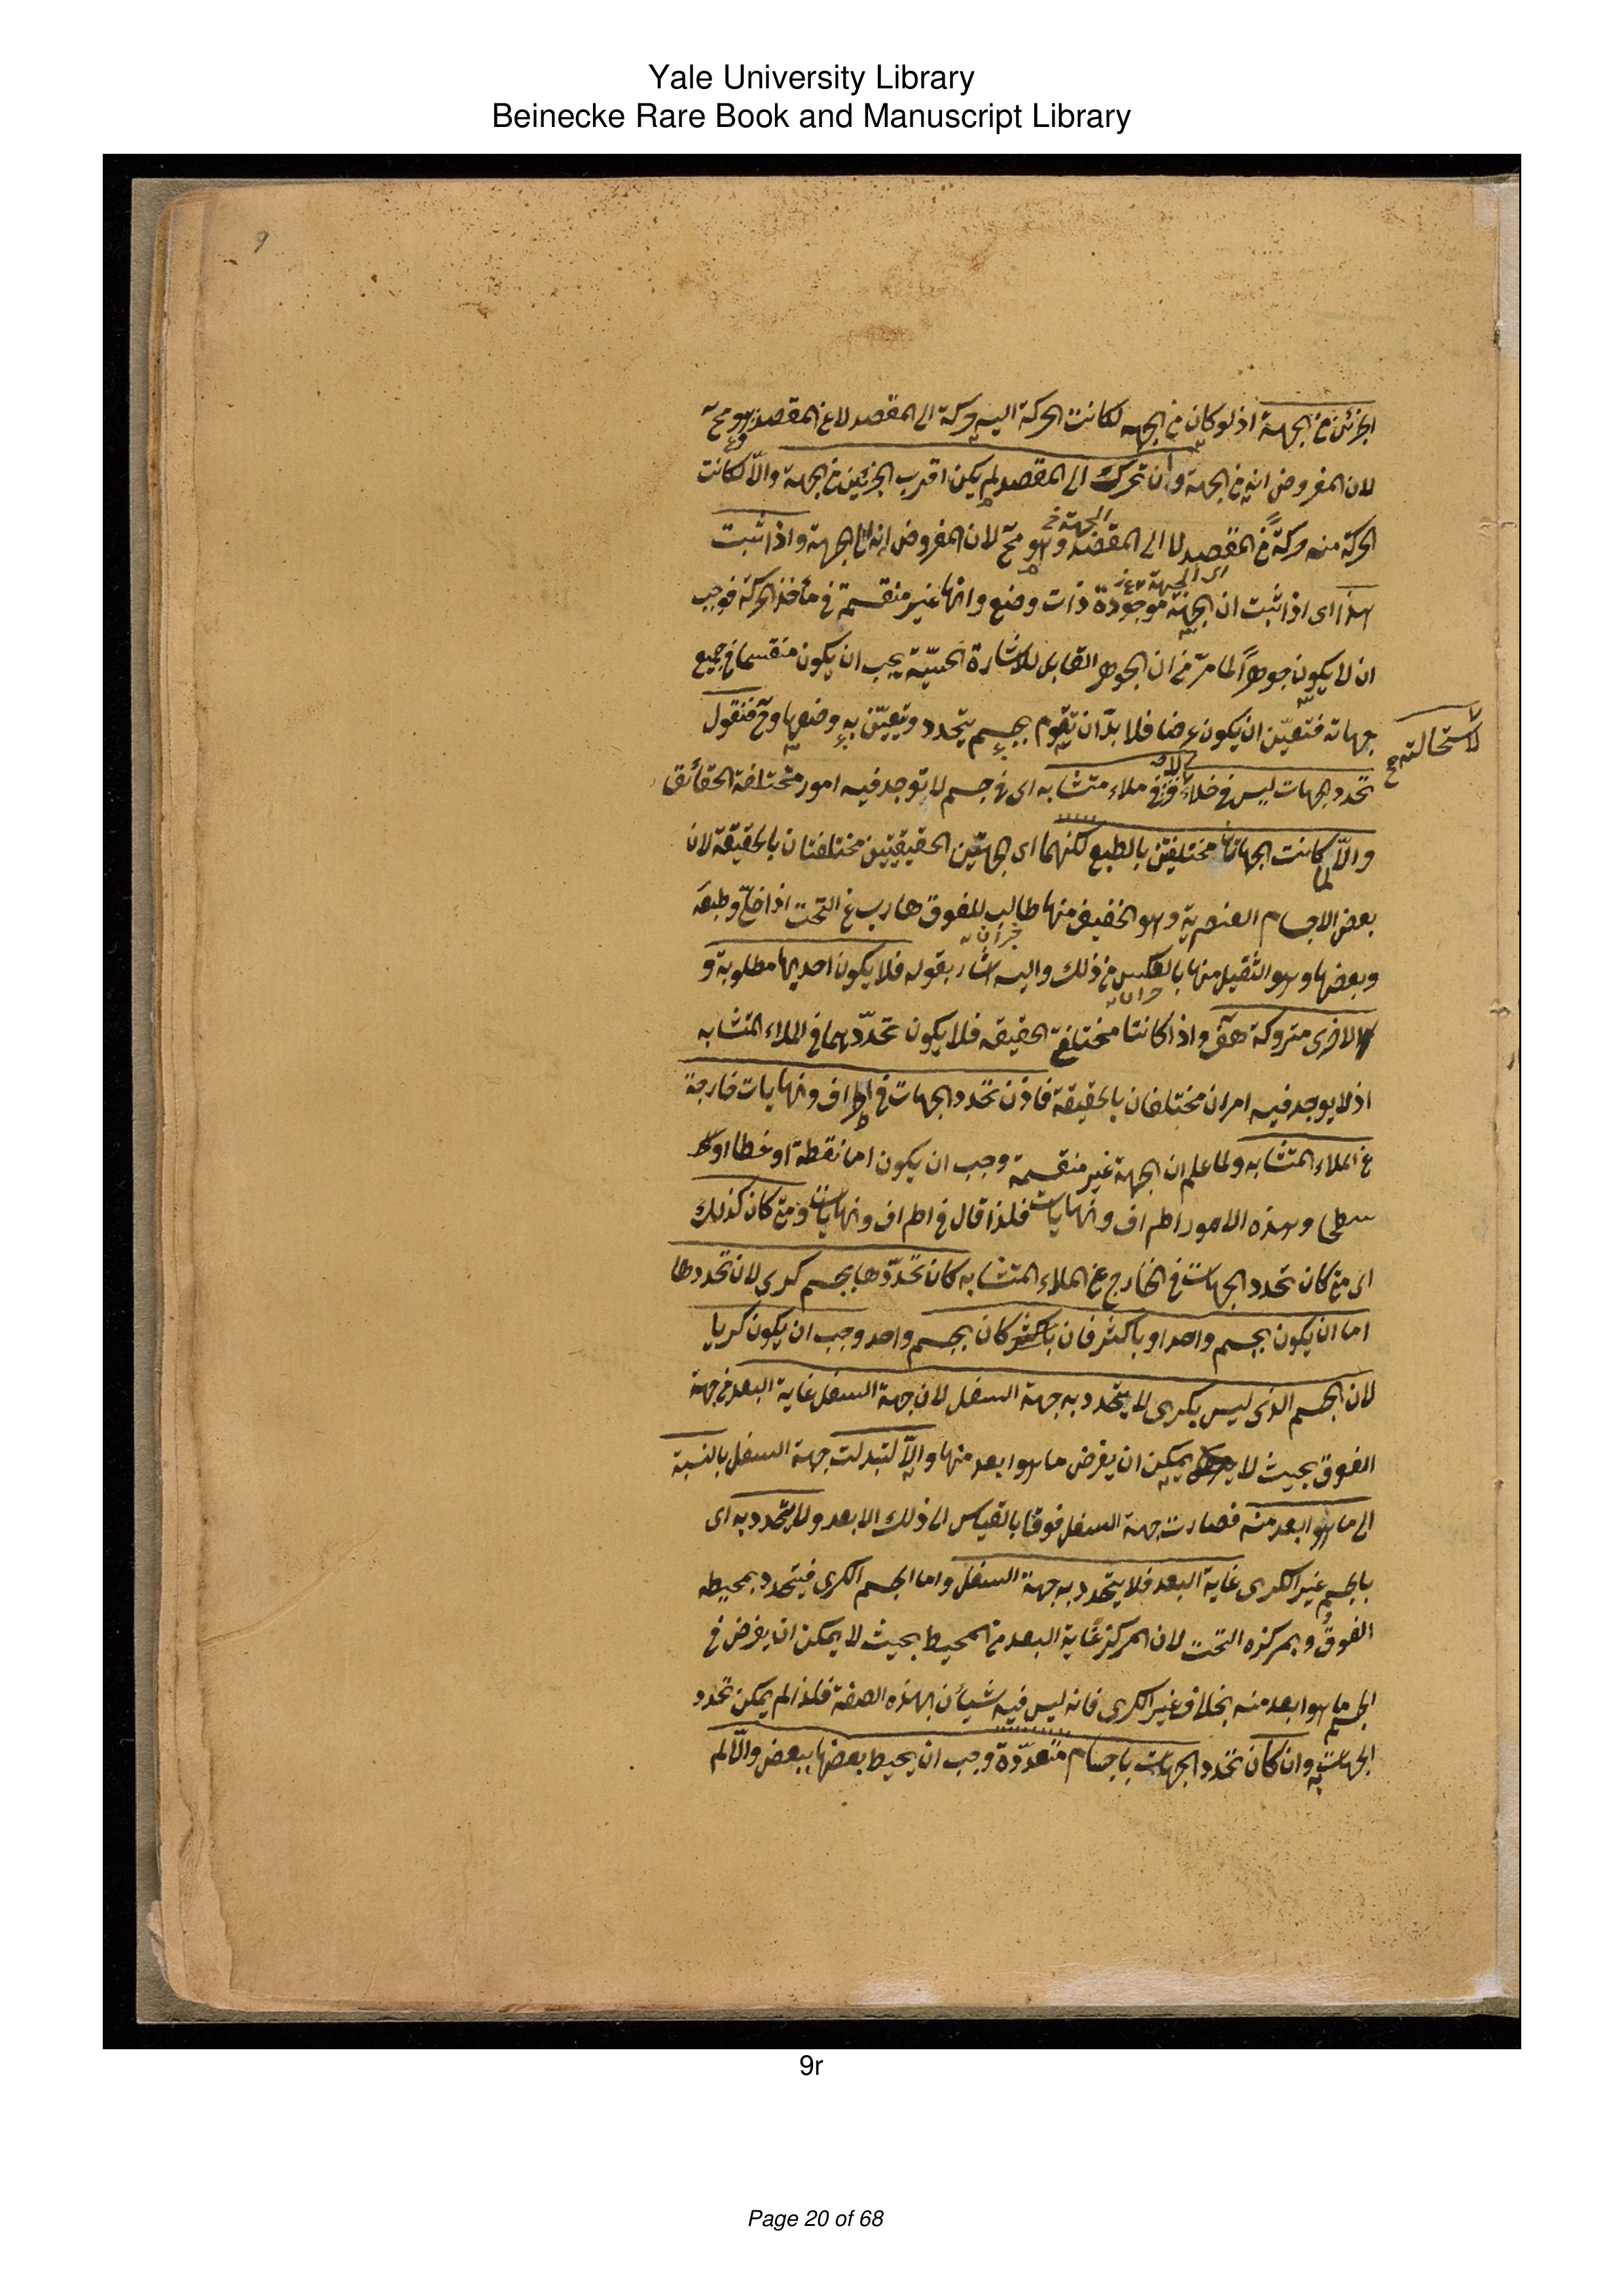 Yale University Library
Beinecke Rare Book and Manuscript Library
9
الجزئين من الجهة اذ لو كان من الجهه لكانت الحركة اليه حركة الى المقصد لا عن المقصد وهو مح
لان المفروض انه من الجهة وان تحرك الى المقصد لم يكن اقرب الجزئين من الجهة والّا لكانت
الحركة منه حركةً عن المقصد لا الى المقصد وهو مح لان المفروض انه الجهة واذا ثبت
الجهة خ
هذا اى اذا ثبت ان الجهة موجودة ذات وضع وانها غير منقسمة فى مأخذ الحركة فوجب
اى الجهة
ان لا يكون جوهراً لما مرّ من ان الجوهر القابل للاشارة الحسّيّة يجب ان يكون منقسما فى جميع
جهاته فتعيّن ان يكون عرضا فلا بدّ ان تقوم بجسم يتحدد وتعيّن به وضعها وح فنقول
لاستحالته
تحدد الجهات ليس فى خلاء ولا فى ملاء متشابه اى فى جسم لا توجد فيه امور مختلفة الحقائق
والّا لما كانت الجهاتان مختلفتين بالطبع لكنهما اى الجهتين الحقيقيتين مختلفتان بالحقيقة لان
بعض الاجسام العنصرية وهو الخفيف منها طالب للفوق هارب عن التحت اذا خلّى وطبعه
وبعضها وهو الثقيل منها بالعكس من ذلك واليه اشار بقوله فلا يكون احديهما مطلوبة و
الاخرى متروكة هف واذا كانتا مختلفتى الحقيقه فلا يكون تحدّدهما فى الملاء المتشابه
اذ لا يوجد فيه امران مختلفان بالحقيقة فاذن تحدد الجهات فى اطراف ونهايات خارجة
عن الملاء المتشابه ولما علم ان الجهة غير منقسمة وجب ان يكون اما نقطة او خطا او
سطحا وهذه الامور اطراف ونهايات فلذا قال فى اطراف ونهايات ومتى كان كذلك
اى متى كان تحدد الجهات فى الخارج عن الملاء المتشابه كان تحدّدها بجسم كرى لان تحددها
اما ان يكون بجسم واحد او باكثر فان كان بجسم واحد وجب ان يكون كريا
لان الجسم الذى ليس بكرى لا يتحدد به جهة السفل لان جهة السفل غاية البعد من جهة
الفوق بحيث لا يمكن ان يفرض ما هو ابعد منها والّا لتبدلت جهة السفل بالنسبة
الى ما هو ابعد منه فصارت جهة السفل فوقا بالقياس الى ذلك الابعد ولا يتحدد به اى
بالجسم غير الكرى غاية البعد فلا يتحدد به جهة السفل واما الجسم الكرى فيتحدد بمحيطه
الفوق وبمركزه التحت لان المركز غاية البعد من المحيط بحيث لا يمكن ان يفرض فى
الجسم ما هو ابعد منه بخلاف غير الكرى فانه ليس فيه شيأن بهذه الصفة فلذا لم يمكن تحدد
الجهات به وان كان تحدد الجهات باجسام متعدّدة وجب ان يحيط بعضها ببعض والّا لم
9r
Page 20 of 68